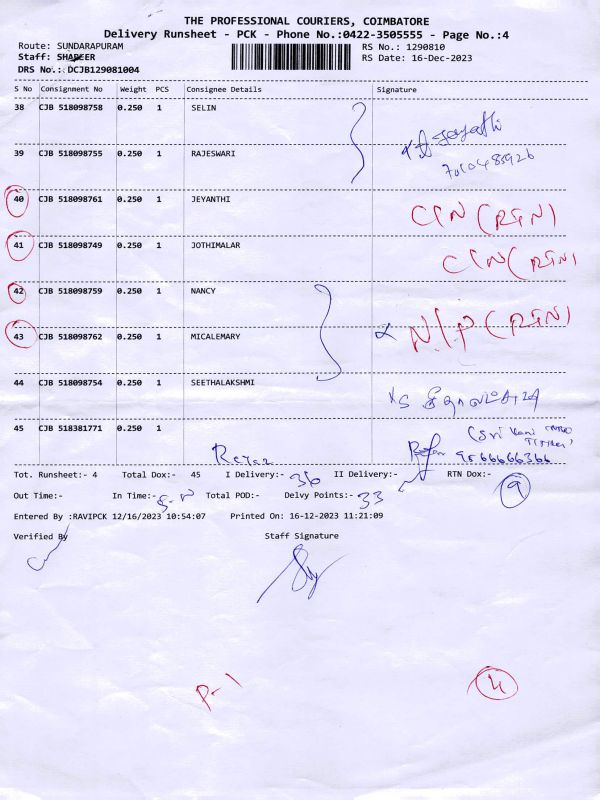 THE PROFESSIONAL COURIERS, COIMBATORE
Delivery Runsheet - PCK - Phone No.:0422-3505555 - Page No.:4
Route: SUNDARAPURAM RS No.: 1290810
Staff: SHADEER RS Date: 16-Dec-2023
DRS No.: DCJB129081004
S No Consignment No Weight PCS Consignee Details Signature
38 CJB 518098758 0.250 1 SELIN
39 CJB 518098755 0.250 1 RAJESWARI
40 CJB 518098761 0.250 1 JEYANTHI CIN (RTN)
41 CJB 518098749 0.250 1 JOTHIMALAR CIN (RTN)
42 CJB 518098759 0.250 1 NANCY
43 CJB 518098762 0.250 1 MICALEMARY N/P (RTN)
44 CJB 518098754 0.250 1 SEETHALAKSHMI
45 CJB 518381771 0.250 1
9566666366
Tot. Runsheet:- 4 Total Dox:- 45 I Delivery:- 36 II Delivery:- RTN Dox:- 9
Out Time:- In Time:- Total POD:- Delvy Points:- 33
Entered By :RAVIPCK 12/16/2023 10:54:07 Printed On: 16-12-2023 11:21:09
Verified By Staff Signature
P-1 4